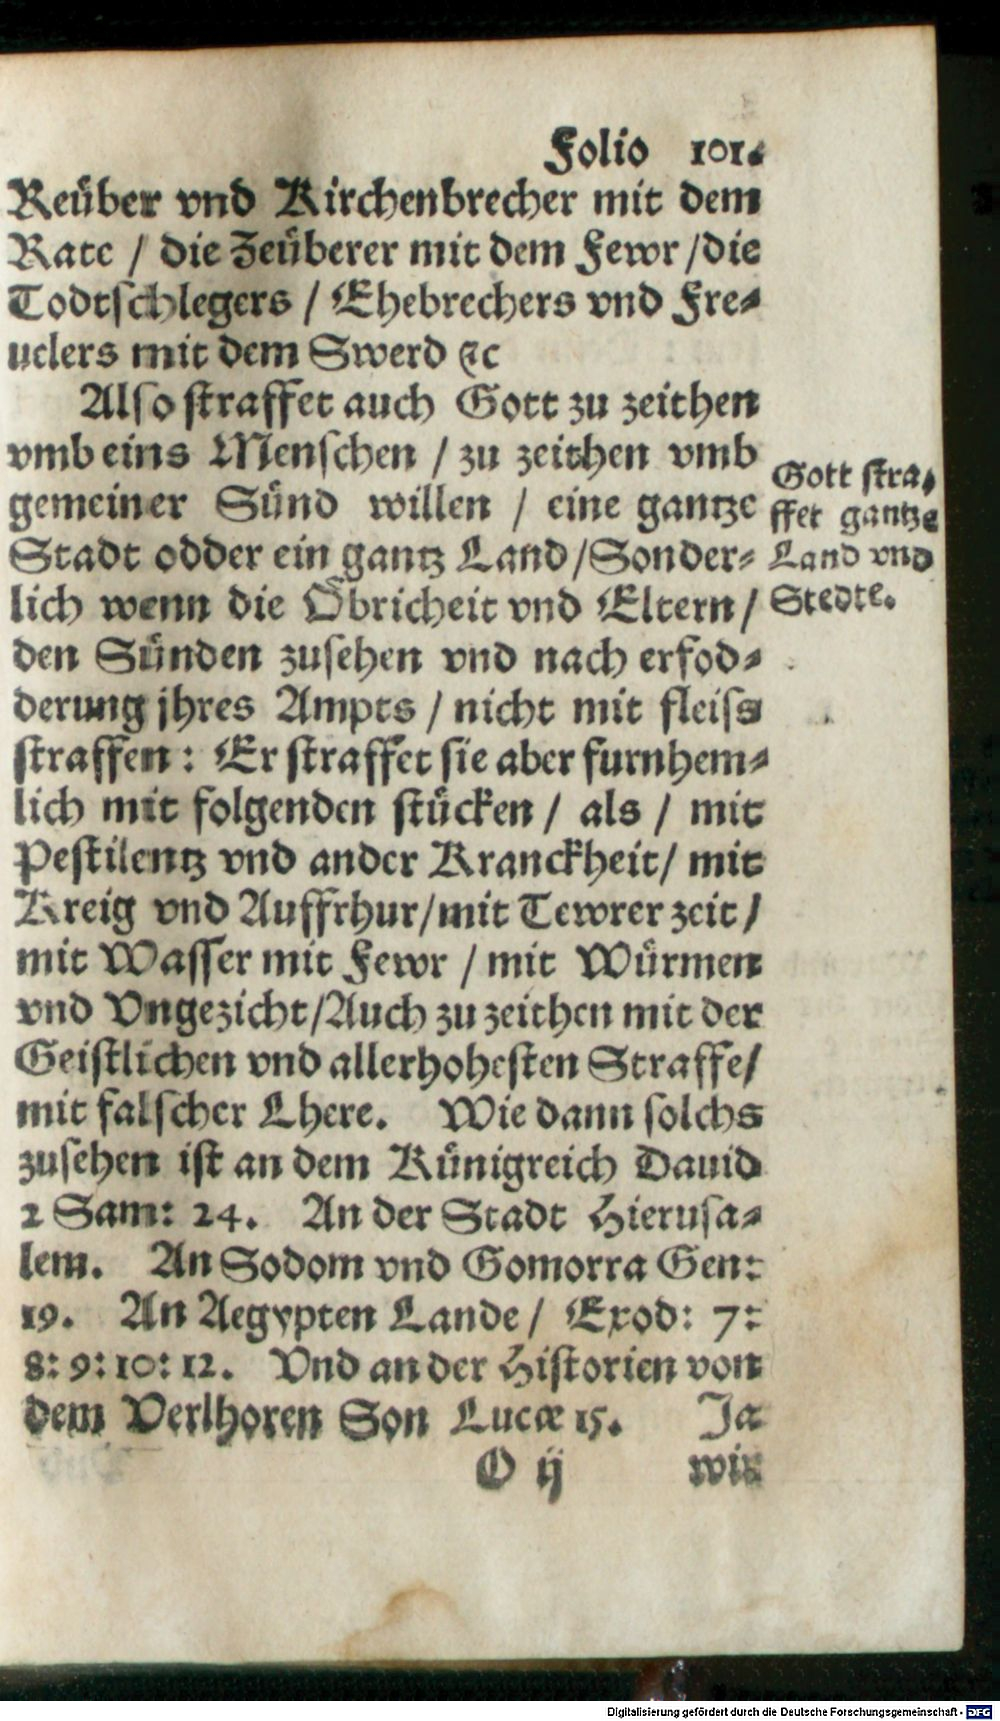 Folio 101.
Reüber vnd Kirchenbrecher mit dem
Rate / die Zeüberer mit dem Fewr /die
Todtschlegers / Ehebrechers vnd Fre⸗
uelers mit dem Swerd ⁊c
Also straffet auch Gott zu zeithen
vmb eins Menschen / zu zeithen vmb
gemeiner Sünd willen / eine gantze
Stadt odder ein gantz Land/Sonder⸗
lich wenn die Öbricheit vnd Eltern /
den Sünden zusehen vnd nach erfod⸗
derung jhres Ampts / nicht mit fleiss
straffen: Er straffet sie aber furnhem⸗
lich mit folgenden stücken / als / mit
Pestilentz vnd ander Kranckheit/ mit
Kreig vnd Auffrhur/mit Tewrer zeit /
mit Wasser mit Fewr / mit Würmen
vnd Vngezicht/Auch zu zeithen mit der
Geistlichen vnd allerhohesten Straffe/
mit falscher Lhere. Wie dann solchs
zusehen ist an dem Künigreich Dauid
2 Sam: 24. An der Stadt Hierusa⸗
lem. An Sodom vnd Gomorra Gen:
19. An Aegypten Lande / Exod: 7:
8: 9: 10: 12. Vnd an der Historien von
dem Verlhoren Son Lucæ 15. Ja
O ij wir
Gott stra⸗
ffet gantze
Land vnd
Stedte.
Digitalisierung gefördert durch die Deutsche Forschungsgemeinschaft - DFG